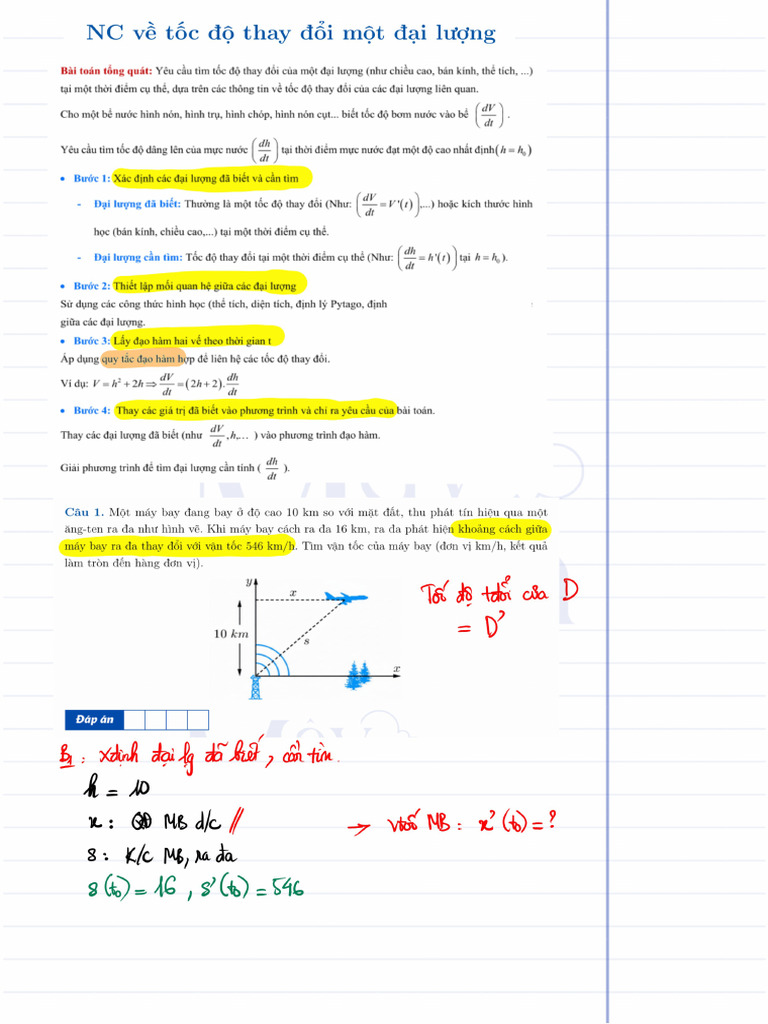 NC về tốc độ thay đổi một đại lượng
Bài toán tổng quát: Yêu cầu tìm tốc độ thay đổi của một đại lượng (như chiều cao, bán kính, thể tích, ...)
tại một thời điểm cụ thể, dựa trên các thông tin về tốc độ thay đổi của các đại lượng liên quan.
Cho một bể nước hình nón, hình trụ, hình chóp, hình nón cụt... biết tốc độ bơm nước vào bể (dV/dt).
Yêu cầu tìm tốc độ dâng lên của mực nước (dh/dt) tại thời điểm mực nước đạt một độ cao nhất định (h = h₀)
• Bước 1: Xác định các đại lượng đã biết và cần tìm
- Đại lượng đã biết: Thường là một tốc độ thay đổi (Như: (dV/dt = V'(t)),...) hoặc kích thước hình
học (bán kính, chiều cao,...) tại một thời điểm cụ thể.
- Đại lượng cần tìm: Tốc độ thay đổi tại một thời điểm cụ thể (Như: (dh/dt = h'(t)) tại h = h₀).
• Bước 2: Thiết lập mối quan hệ giữa các đại lượng
Sử dụng các công thức hình học (thể tích, diện tích, định lý Pytago, định
giữa các đại lượng.
• Bước 3: Lấy đạo hàm hai vế theo thời gian t
Áp dụng quy tắc đạo hàm hợp để liên hệ các tốc độ thay đổi.
Ví dụ: V = h² + 2h ⇒ dV/dt = (2h + 2).dh/dt
• Bước 4: Thay các giá trị đã biết vào phương trình và chỉ ra yêu cầu của bài toán.
Thay các đại lượng đã biết (như dV/dt, h,... ) vào phương trình đạo hàm.
Giải phương trình để tìm đại lượng cần tính ( dh/dt ).
Câu 1. Một máy bay đang bay ở độ cao 10 km so với mặt đất, thu phát tín hiệu qua một
ăng-ten ra đa như hình vẽ. Khi máy bay cách ra đa 16 km, ra đa phát hiện khoảng cách giữa
máy bay ra đa thay đổi với vận tốc 546 km/h. Tìm vận tốc của máy bay (đơn vị km/h, kết quả
làm tròn đến hàng đơn vị).
y
x
10 km
s
x
Tốc độ tđổi của D
= D'
Đáp án
B1: xđịnh đại lg đã biết, cần tìm.
h = 10
x: QĐ MB d/c //
→ vtốc MB: x'(t₀) = ?
s: K/c MB, ra đa
s(t₀) = 16, s'(t₀) = 546